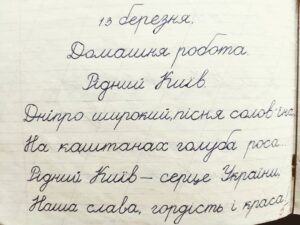 13 березня.
Домашня робота
Рідний Київ.
Дніпро широкий, пісня солов'їна
На каштанах голуба роса...
Рідний Київ – серце України,
Наша слава, гордість і краса